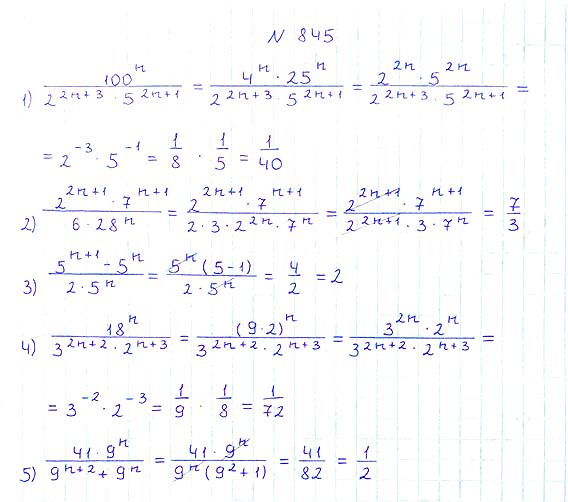 N 845
1) 100^n / (2^(2n+3) · 5^(2n+1)) = (4^n · 25^n) / (2^(2n+3) · 5^(2n+1)) = (2^(2n) · 5^(2n)) / (2^(2n+3) · 5^(2n+1)) =
= 2^(-3) · 5^(-1) = 1/8 · 1/5 = 1/40
2) (2^(2n+1) · 7^(n+1)) / (6 · 28^n) = (2^(2n+1) · 7^(n+1)) / (2 · 3 · 2^(2n) · 7^n) = (2^(2n+1) · 7^(n+1)) / (2^(2n+1) · 3 · 7^n) = 7/3
3) (5^(n+1) - 5^n) / (2 · 5^n) = (5^n (5-1)) / (2 · 5^n) = 4/2 = 2
4) 18^n / (3^(2n+2) · 2^(n+3)) = (9·2)^n / (3^(2n+2) · 2^(n+3)) = (3^(2n) · 2^n) / (3^(2n+2) · 2^(n+3)) =
= 3^(-2) · 2^(-3) = 1/9 · 1/8 = 1/72
5) (41 · 9^n) / (9^(n+2) + 9^n) = (41 · 9^n) / (9^n (9^2+1)) = 41/82 = 1/2